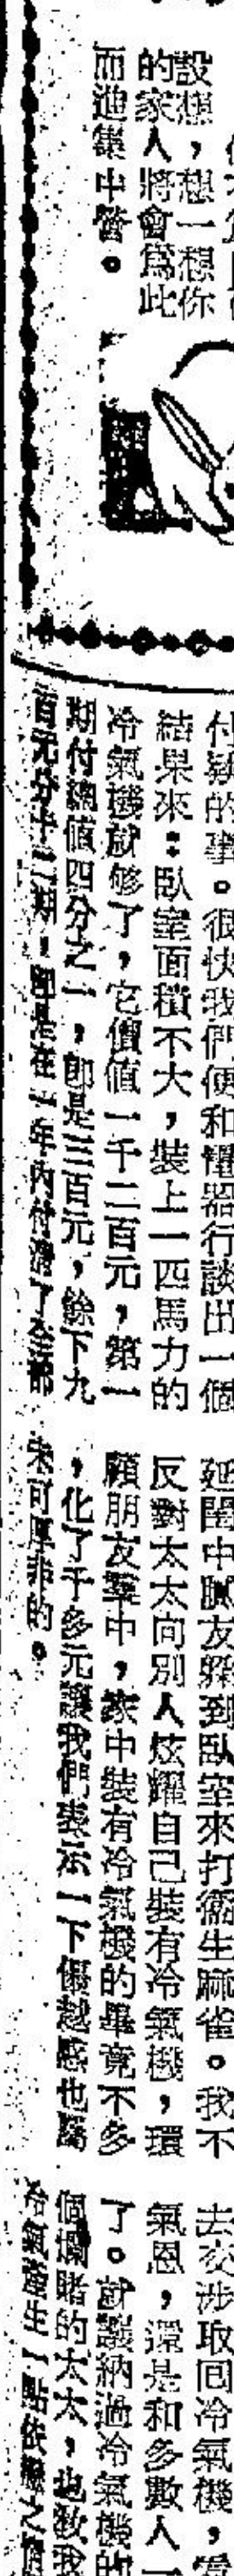 設想，想一想你
的家人將會爲此
而進集中營。
付款的事。很快我們便和電器行談出一個
結果來：臥室面積不大，裝上一匹馬力的
冷氣機就够了，它價值一千二百元，第一
期付總值四分之一，即是三百元，餘下九
百元分十二期，即是在一年內付清了全部
到臥室來打衞生麻雀。我不
反對太太向別人炫耀自己裝有冷氣機，環
顧朋友羣中，家中裝有冷氣機的畢竟不多
，化了千多元讓我們表示一下優越感也屬
未可厚非的。
去交涉取回冷氣機，
氣恩，還是和多數人一
了。就讓納過冷氣機的
個爛賭的太太，也教我
冷氣產生一點依戀之情